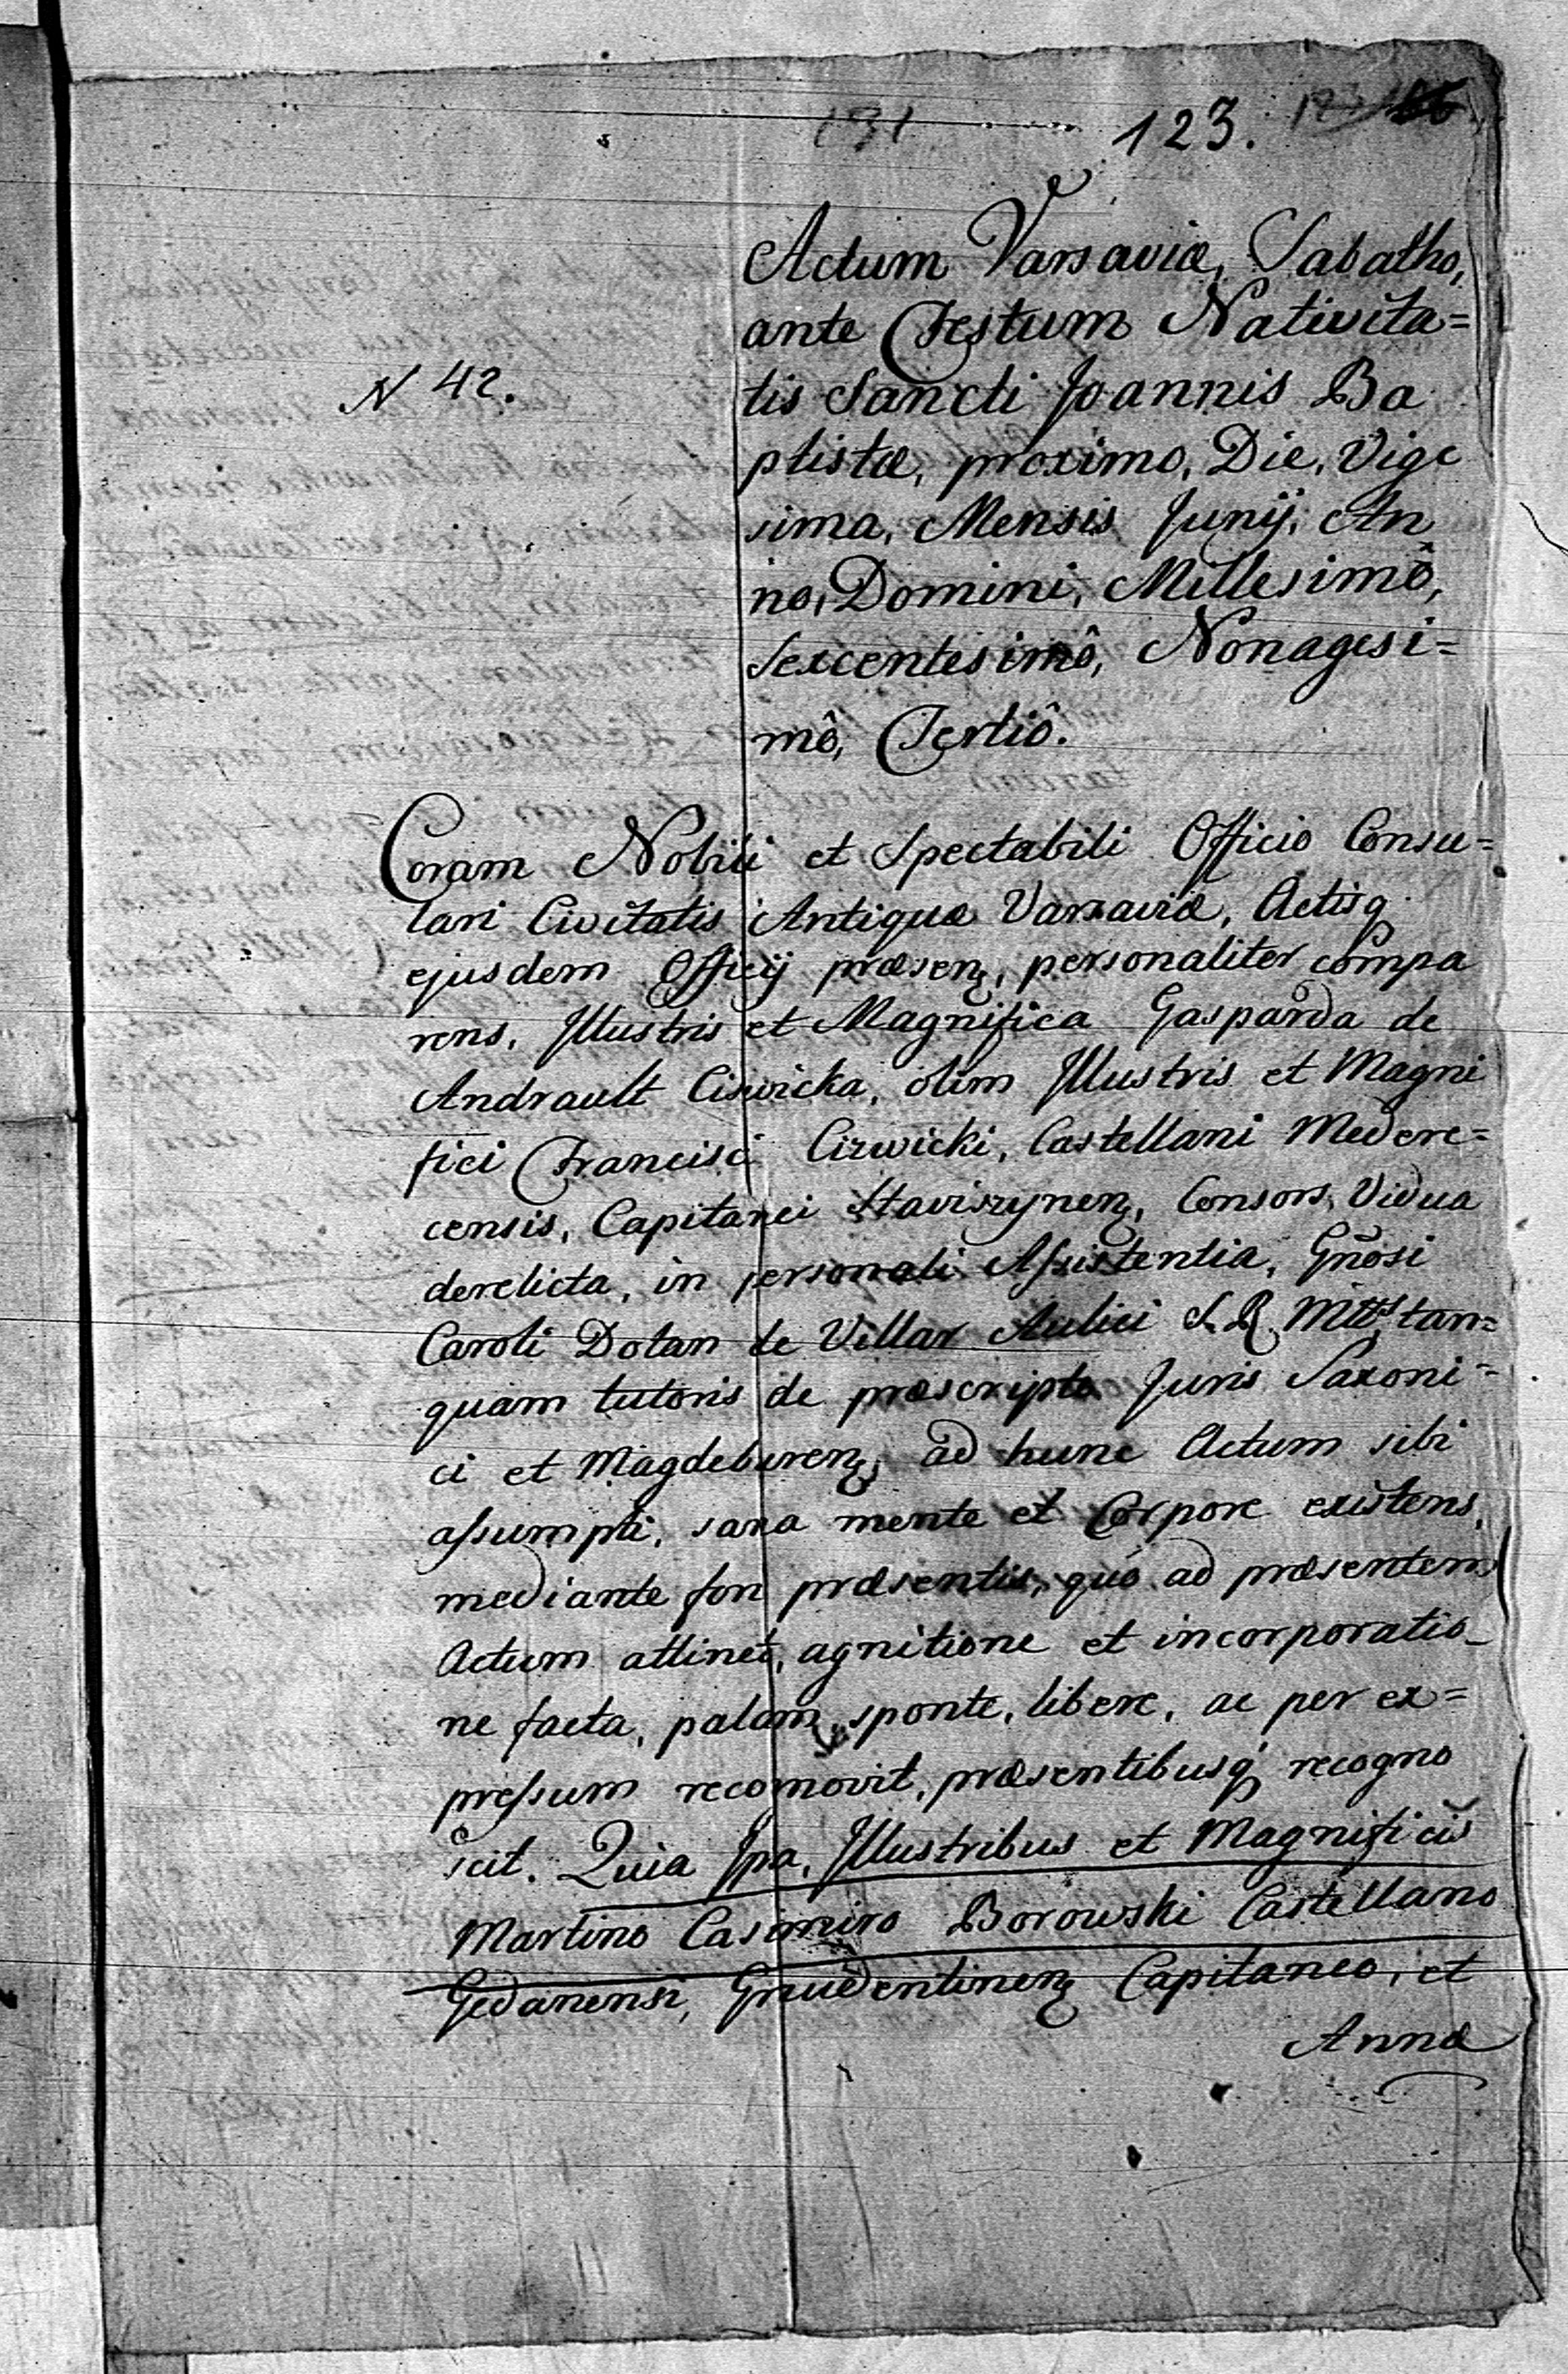 131 123.
Actum Varsaviæ, Sabatho,
ante Festum Nativita=
N 42.
tis Sancti Joannis Ba
ptistæ, proximo, Die, Vige
sima, Mensis Junij, An
no, Domini, Millesimô,
Sexcentesimô, Nonagesi=
mô, Tertiô.
Coram Nobili et Spectabili Officio Consu=
lari Civitatis Antiquæ Varsaviæ, Actisq
ejusdem Officij præsenʒ, personaliter compa
rens, Illustris et Magnifica Gasparda de
Andrault Ciswicka, olim Illustris et Magni
fici Francisci Cirwicki, Castellani Medere=
censis, Capitanei Staviszynenʒ, Consors, Vidua
derelicta, in personali Assistentia, Gnosi
Caroli Dolan de Villar Aulici S. R. Mttis tan=
quam tutoris de præscripto Juris Saxoni=
ci et Magdeburenʒ, ad hunc Actum sibi
assumpti, sana mente et Corpore existens,
mediante fori præsentis, quó ad præsentem
Actum attinet, agnitione et incorporatio_
ne facta, palam, sponte, libere, ac per ex=
pressum recognovit, præsentibusq recogno
scit. Quia Ipa, Illustribus et Magnificis
Martino Casimiro Borowski Castellano
Gedanensi, Grudentinenʒ Capitaneo, et
Annæ